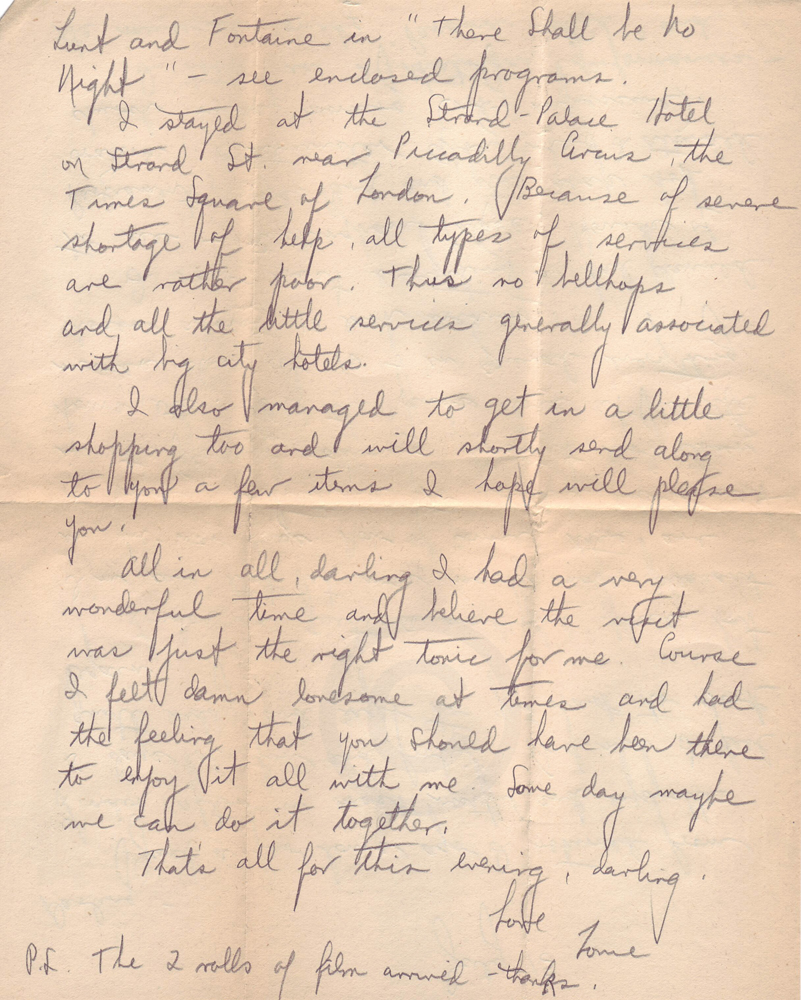 Lunt and Fontaine in "There Shall be No
Night" - see enclosed programs.
I stayed at the Strand-Palace Hotel
on Strand St. near Piccadilly Circus, the
Times Square of London. (Because of severe
shortage of help, all types of services
are rather poor. Thus no bellhops
and all the little services generally associated
with big city hotels.
I also managed to get in a little
shopping too and will shortly send along
to you a few items I hope will please
you.
All in all, darling I had a very
wonderful time and believe the visit
was just the right tonic for me. Course
I felt damn lonesome at times and had
the feeling that you should have been there
to enjoy it all with me. Some day maybe
we can do it together.
That's all for this evening, darling.
Love
P.S. The 2 rolls of film arrived - thanks.